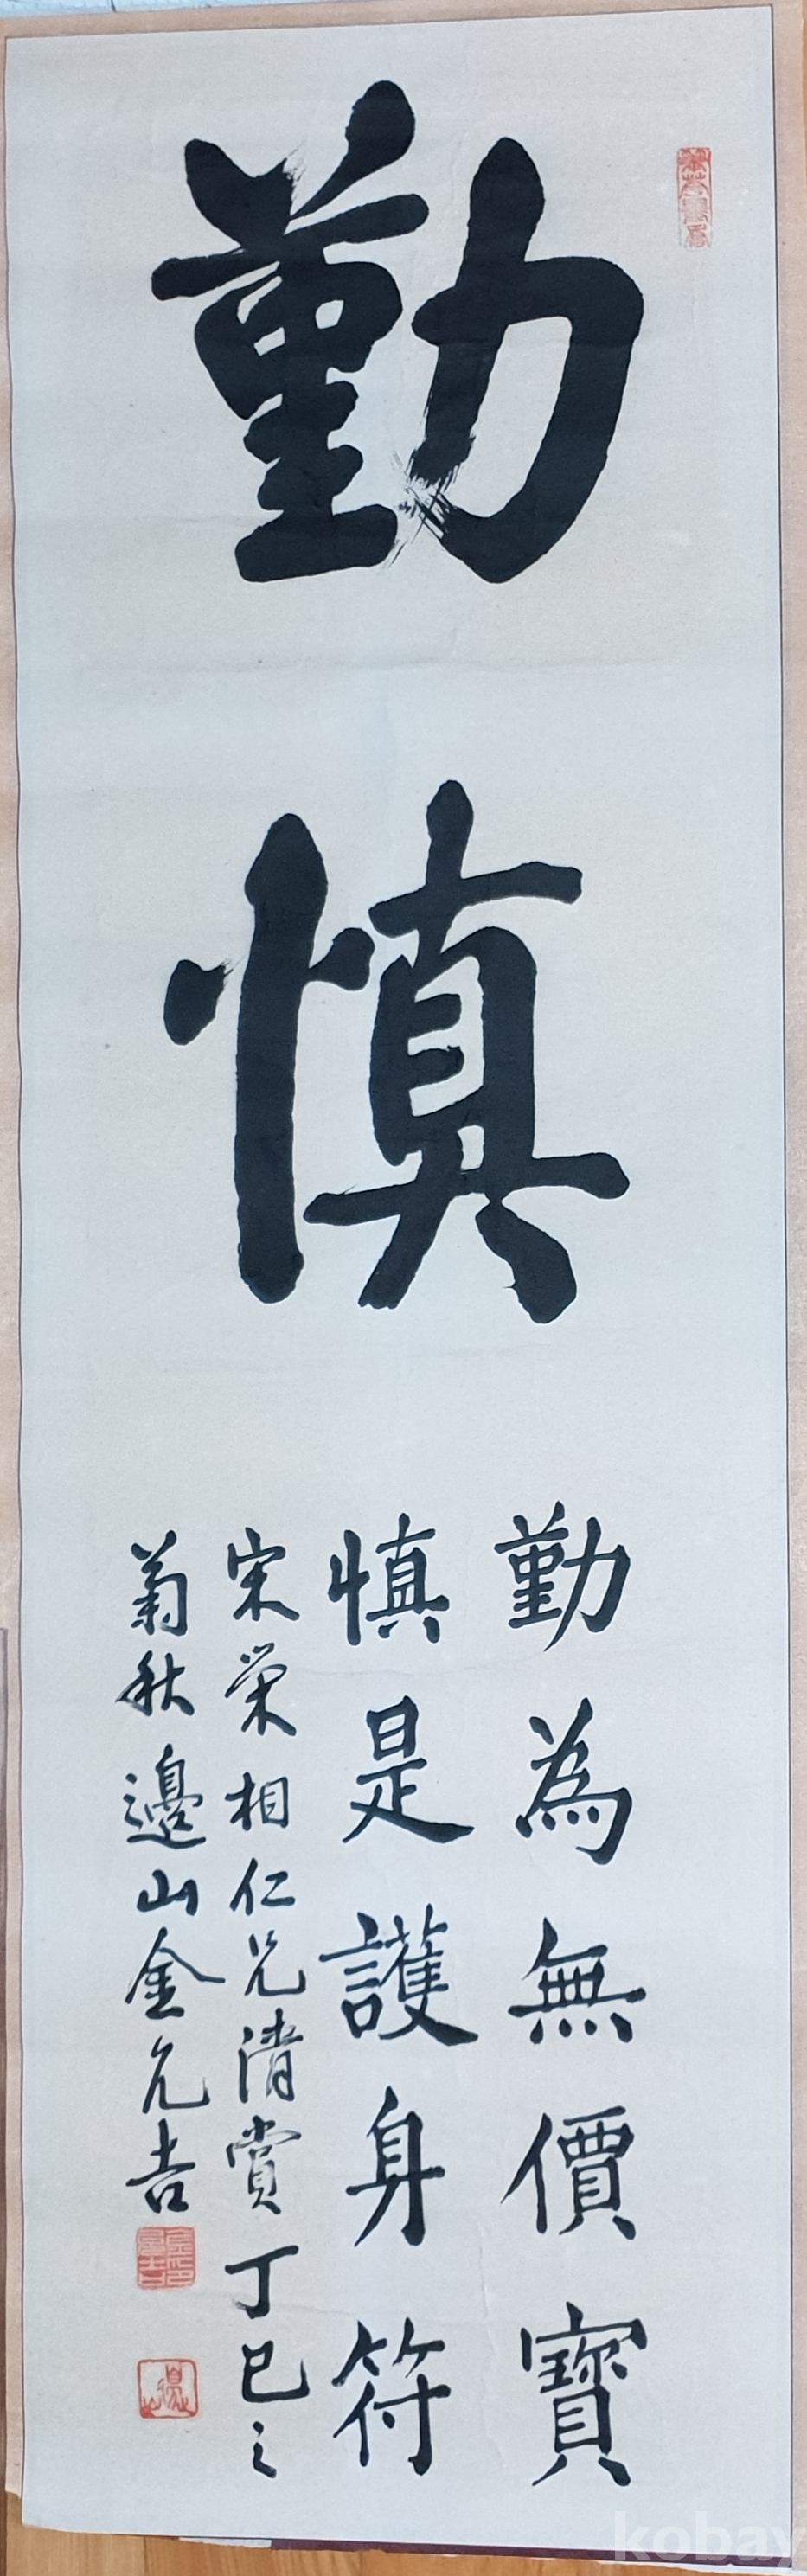 勤慎
勤為無價寶
慎是護身符
宋榮相仁兄清賞丁巳之
菊秋邊山金允吉
kobay